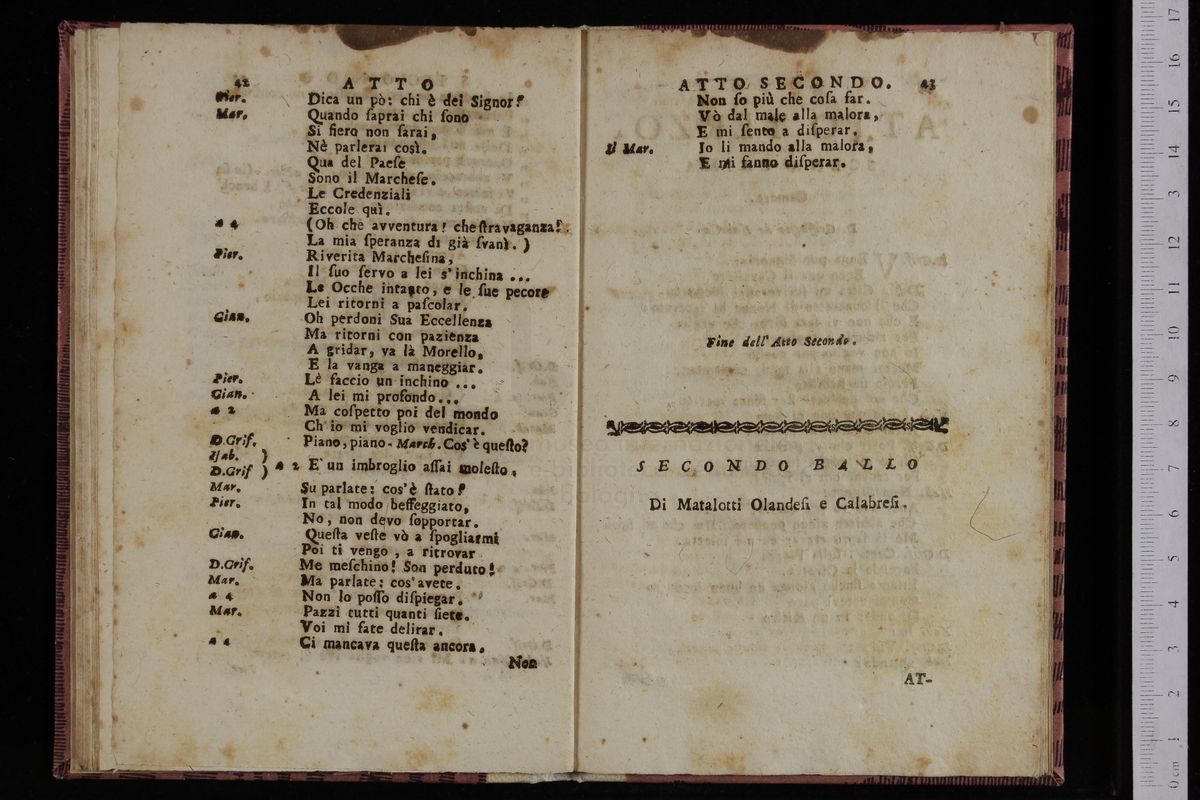 42 ATTO
Pier. Dica un pò: chi è dei Signor?
Mar. Quando ſaprai chi ſono
Si fiero non ſarai,
Nè parlerai così.
Qua del Paeſe
Sono il Marcheſe.
Le Credenziali
Eccole quì.
a 4 (Oh che avventura! che ſtravaganza!
La mia ſperanza di già ſvanì. )
Pier. Riverita Marcheſina,
Il ſuo ſervo a lei s'inchina ...
Le Ocche intanto, e le ſue pecore
Lei ritorni a paſcolar.
Gian. Oh perdoni Sua Eccellenza
Ma ritorni con pazienza
A gridar, va là Morello,
E la vanga a maneggiar.
Pier. Lè faccio un inchino ...
Gian. A lei mi profondo...
a 2 Ma coſpetto poi del mondo
Ch'io mi voglio vendicar.
D.Grif. Piano, piano - March. Cos'è queſto?
Iſab. )
D.Grif ) a 2 E' un imbroglio aſſai moleſto,
Mar. Su parlate: cos'è ſtato?
Pier. In tal modo beffeggiato,
No, non devo ſopportar.
Gian. Queſta veſte vò a ſpogliarmi
Poi ti vengo, a ritrovar
D.Grif. Me meſchino! Son perduto!
Mar. Ma parlate: cos'avete.
a 4 Non lo poſſo diſpiegar.
Mar. Pazzi tutti quanti ſiete.
Voi mi fate delirar.
a 4 Ci mancava queſta ancora.
Non
ATTO SECONDO. 43
Non ſo più che coſa far.
Vò dal male alla malora,
E mi ſento a diſperar.
Il Mar. Io li mando alla malora,
E mi fanno diſperar.
Fine dell'Atto Secondo.
SECONDO BALLO
Di Matalotti Olandeſi e Calabreſi.
AT-